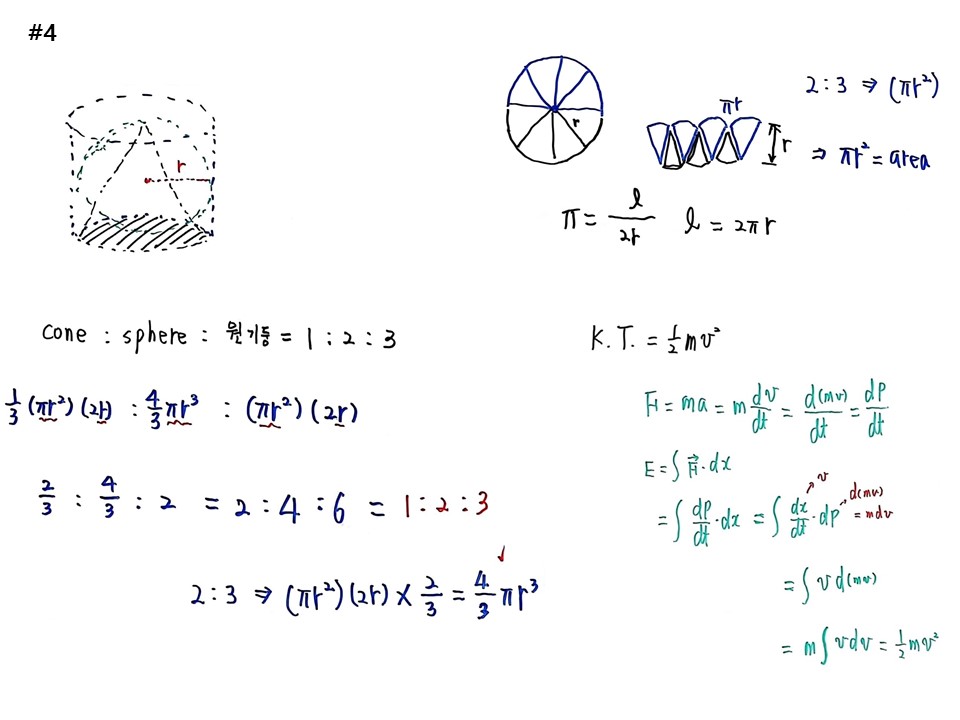 #4
r
r
πr
r
2 : 3 ⇒ (πr²)
⇒ πr² = area
π = l/2r   l = 2πr
cone : sphere : 원기둥 = 1 : 2 : 3
1/3 (πr²)(2r) : 4/3 πr³ : (πr²)(2r)
2/3 : 4/3 : 2 = 2 : 4 : 6 = 1 : 2 : 3
2 : 3 ⇒ (πr²)(2r) × 2/3 = 4/3 πr³
K.T. = 1/2 mv²
F = ma = m dv/dt = d(mv)/dt = dp/dt
E = ∫ F⃗ · dx
= ∫ dp/dt · dx = ∫ dx/dt · dp
v
d(mv)
= mdv
= ∫ v d(mv)
= m ∫ v dv = 1/2 mv²